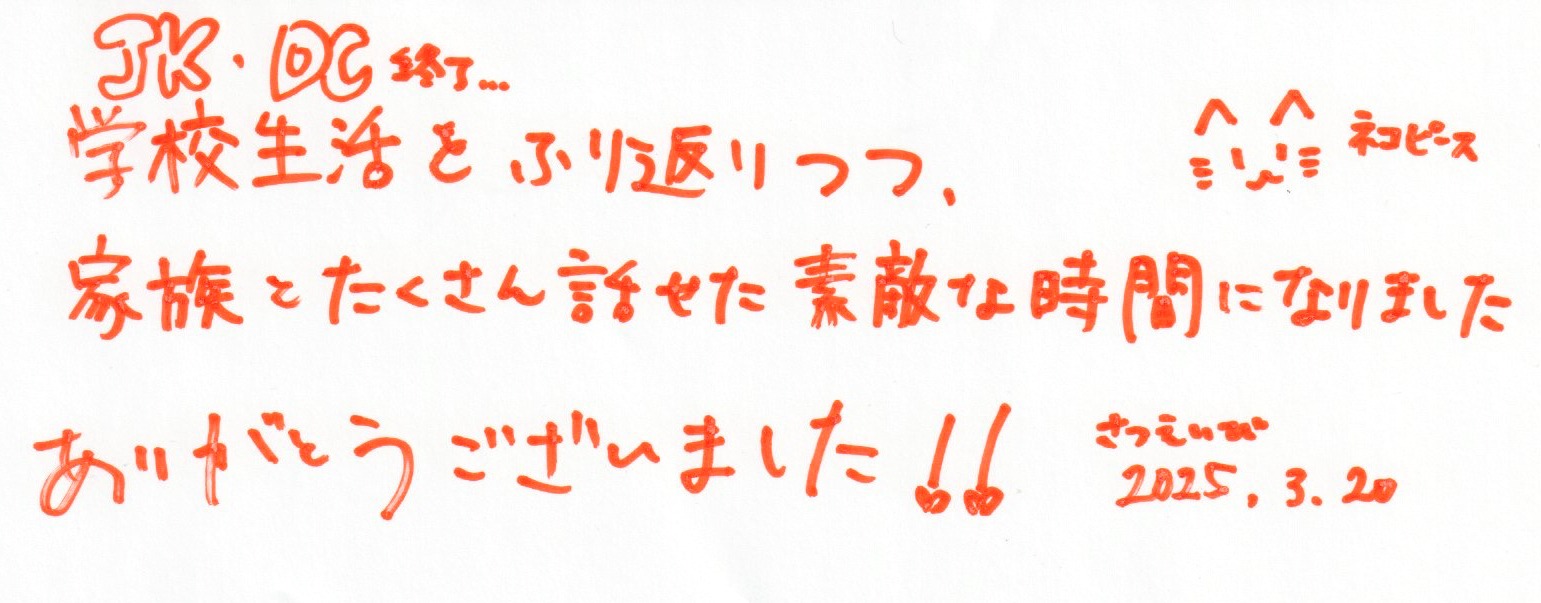 JK・DC 終了…
学校生活をふり返りつつ、
ネコピース
家族とたくさん話せた素敵な時間になりました
ありがとうございました!!
さつえいび
2025.3.20